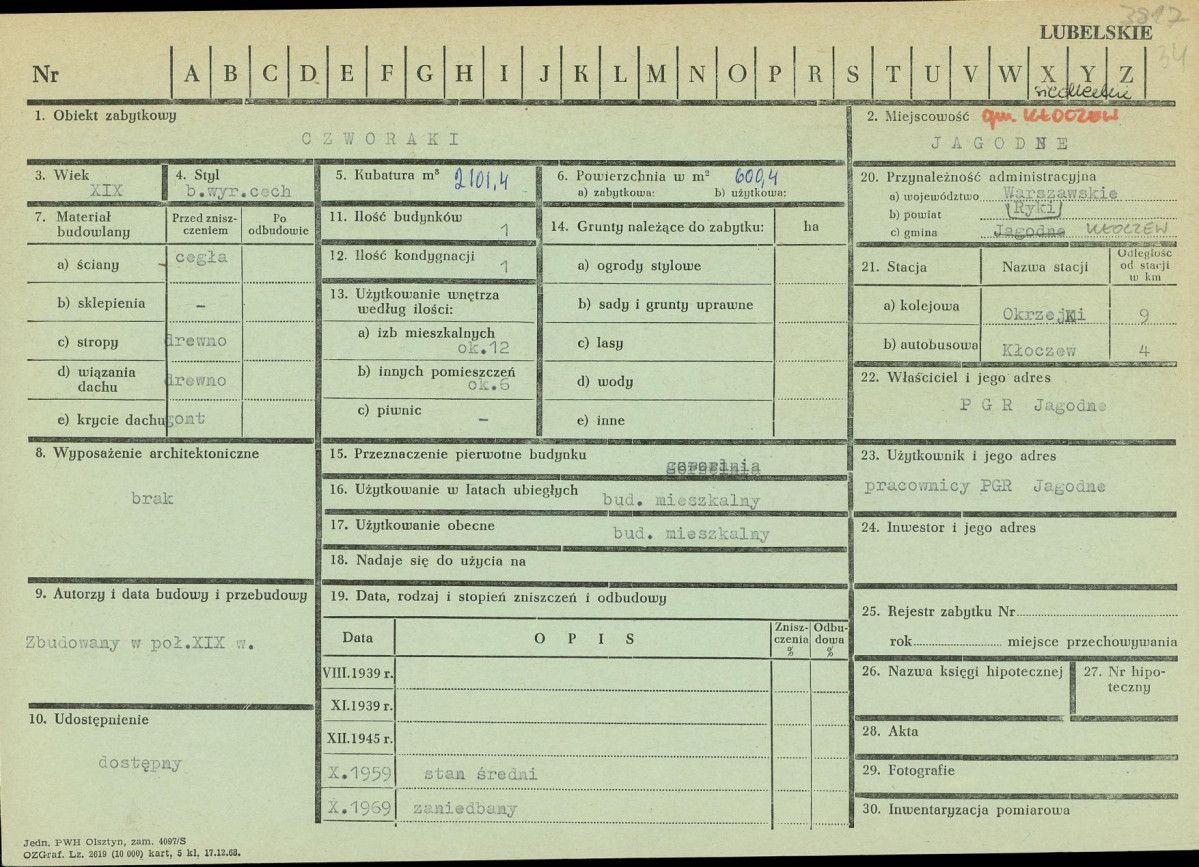 3817
LUBELSKIE
34
Nr A B C D E F G H I J K L M N O P R S T U V W X Y Z
siedleckie
1. Obiekt zabytkowy
CZWORAKI
2. Miejscowość gm. KŁOCZEW
JAGODNE
3. Wiek
XIX
4. Styl
b.wyr.cech
5. Kubatura m³ 2101,4
6. Powierzchnia w m² 600,4
a) zabytkowa: b) użytkowa:
20. Przynależność administracyjna
a) województwo Warszawskie
b) powiat Ryki
c) gmina Jagodne KŁOCZEW
7. Materiał budowlany
Przed zniszczeniem
Po odbudowie
a) ściany cegła
b) sklepienia –
c) stropy drewno
d) wiązania dachu drewno
e) krycie dachu gont
11. Ilość budynków
1
12. Ilość kondygnacji
1
13. Użytkowanie wnętrza
według ilości:
a) izb mieszkalnych
ok.12
b) innych pomieszczeń
ok.6
c) piwnic –
14. Grunty należące do zabytku: ha
a) ogrody stylowe
b) sady i grunty uprawne
c) lasy
d) wody
e) inne
21. Stacja Nazwa stacji Odległość od stacji w km
a) kolejowa Okrzeji 9
b) autobusowa Kłoczew 4
22. Właściciel i jego adres
P G R Jagodne
8. Wyposażenie architektoniczne
brak
15. Przeznaczenie pierwotne budynku
gorzelnia
16. Użytkowanie w latach ubiegłych bud. mieszkalny
17. Użytkowanie obecne
bud. mieszkalny
18. Nadaje się do użycia na
23. Użytkownik i jego adres
pracownicy PGR Jagodne
24. Inwestor i jego adres
9. Autorzy i data budowy i przebudowy
Zbudowany w poł.XIX w.
10. Udostępnienie
dostępny
19. Data, rodzaj i stopień zniszczeń i odbudowy
Data OPIS Zniszczenia % Odbudowa %
VIII.1939 r.
XI.1939 r.
XII.1945 r.
X.1959 stan średni
X.1969 zaniedbany
25. Rejestr zabytku Nr
rok miejsce przechowywania
26. Nazwa księgi hipotecznej
27. Nr hipoteczny
28. Akta
29. Fotografie
30. Inwentaryzacja pomiarowa
Jedn. PWH Olsztyn, zam. 4097/S
OZGraf. Lz. 2619 (10 000) kart. 5 kl. 17.12.68.